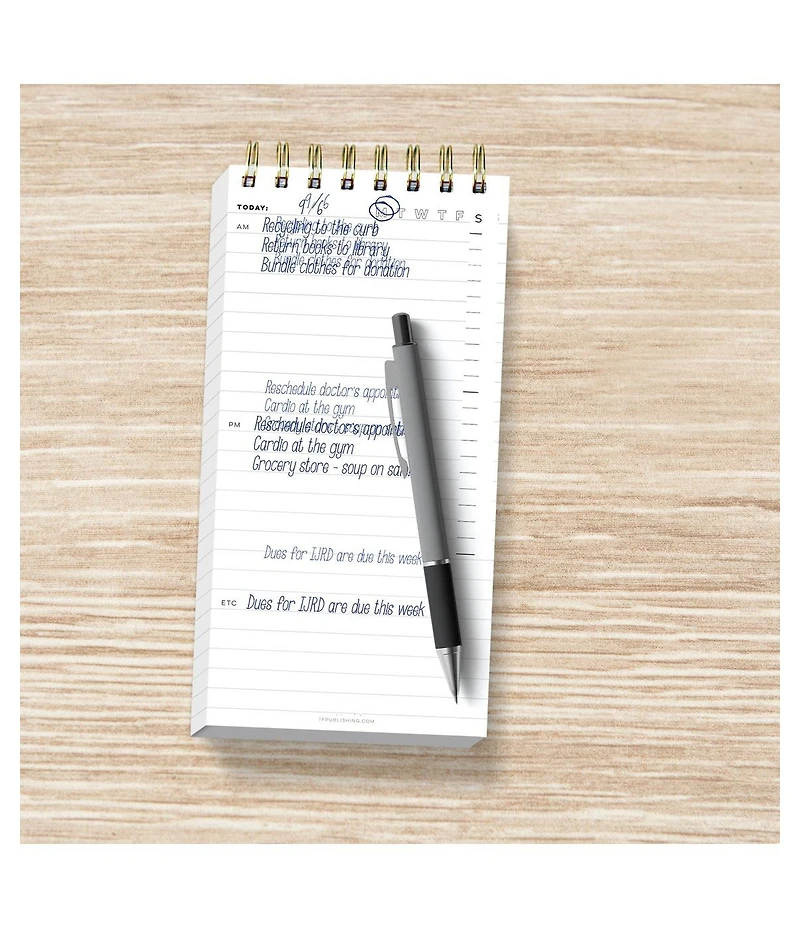 TODAY: M T W T F S
AM Recycling to the curb
Return books to library
Bundle clothes for donation
Reschedule doctor's
Cardio at the gym
PM Reschedule doctor's
Cardio at the gym
Grocery store - soup on
Dues for IJRD are due this week
ETC Dues for IJRD are due this week
1FPUBLISHING.COM